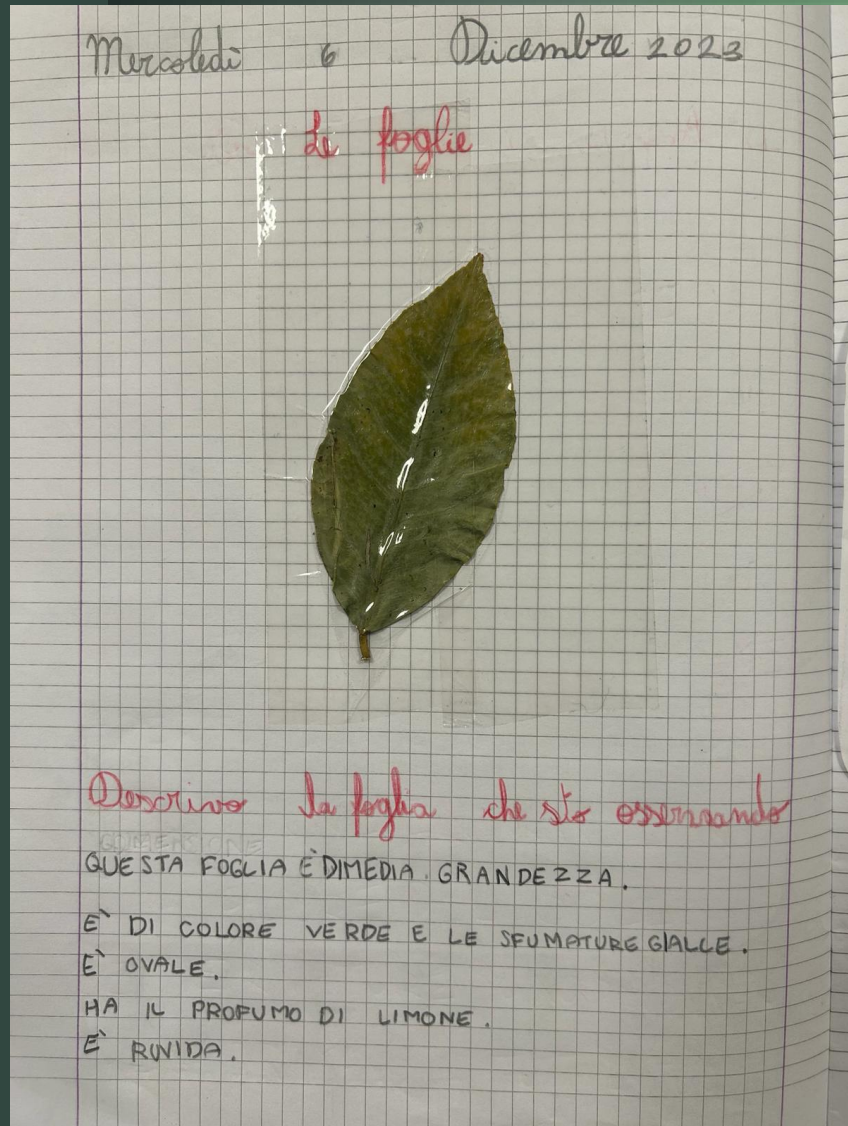 Mercoledì 6 Dicembre 2023
Le foglie
Descrivo la foglia che sto osservando
QUESTA FOGLIA È DI MEDIA GRANDEZZA.
E' DI COLORE VERDE E LE SFUMATURE GIALLE.
E' OVALE.
HA IL PROFUMO DI LIMONE.
E' RUVIDA.